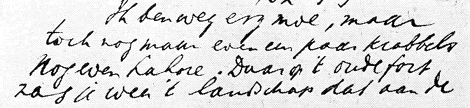 Ik ben weg erg moe, maar
toch nog maar even een paar krabbels
Nog even Lahore. Daar op 't oude fort
zag je weer 't landschap dat aan de